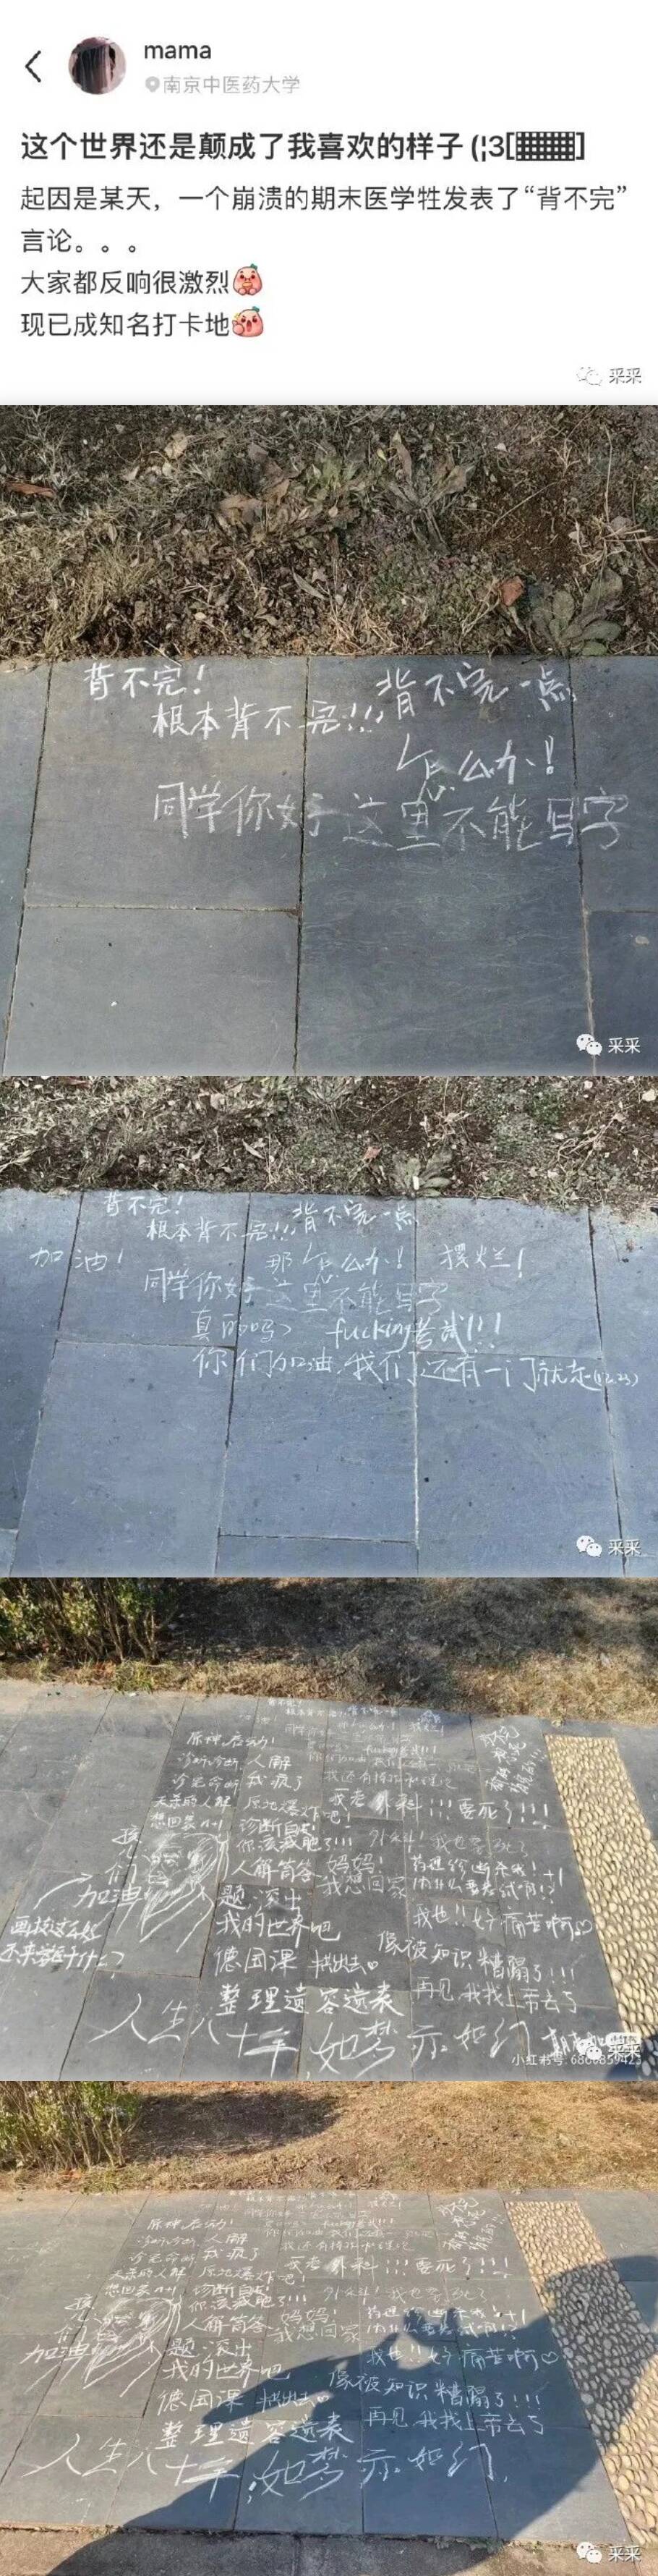 mama
南京中医药大学
这个世界还是颠成了我喜欢的样子 (¦3[▓▓▓]
起因是某天，一个崩溃的期末医学牲发表了“背不完”
言论。。。
大家都反响很激烈
现已成知名打卡地
采采
背不完！
背不完一点
根本背不完!!!
怎么办！
同学你好这里不能写字
采采
背不完！
根本背不完!!! 背不完一点
加油！
那怎么办！ 摆烂！
同学你好 这里不能写字
真的吗？ fucking考试!!!
你们加油，我们还有一门就走(12.23)
采采
原神启动！
诊断诊断 人解
我疯了
天杀的人解
原地爆炸吧！
我考 外科!!! 要死了!!!
诊断自己！
你该减肥了!!!
外科！我也要死了
人解简答
题 滚出
我的世界吧
妈妈！
我想回家
加油
德国课 捞出去。
我也!! 好痛苦啊♡
像被知识糟蹋了!!!
再见，我找上帝去了
整理遗容遗表
画技这么好
还来学医干什么？
人生八十年，如梦亦如幻
小红书号: 6860859425
采采
原神启动！
诊断诊断 人解
我疯了
天杀的人解
原地爆炸吧！
我考 外科!!! 要死了!!!
诊断自己！
你该减肥了!!!
外科！我也要死了
人解简答
题 滚出
我的世界吧
妈妈！
我想回家
加油
德国课 捞出去。
我也!! 好痛苦啊♡
像被知识糟蹋了!!!
再见，我找上帝去了
整理遗容遗表
人生八十年，如梦亦如幻
采采